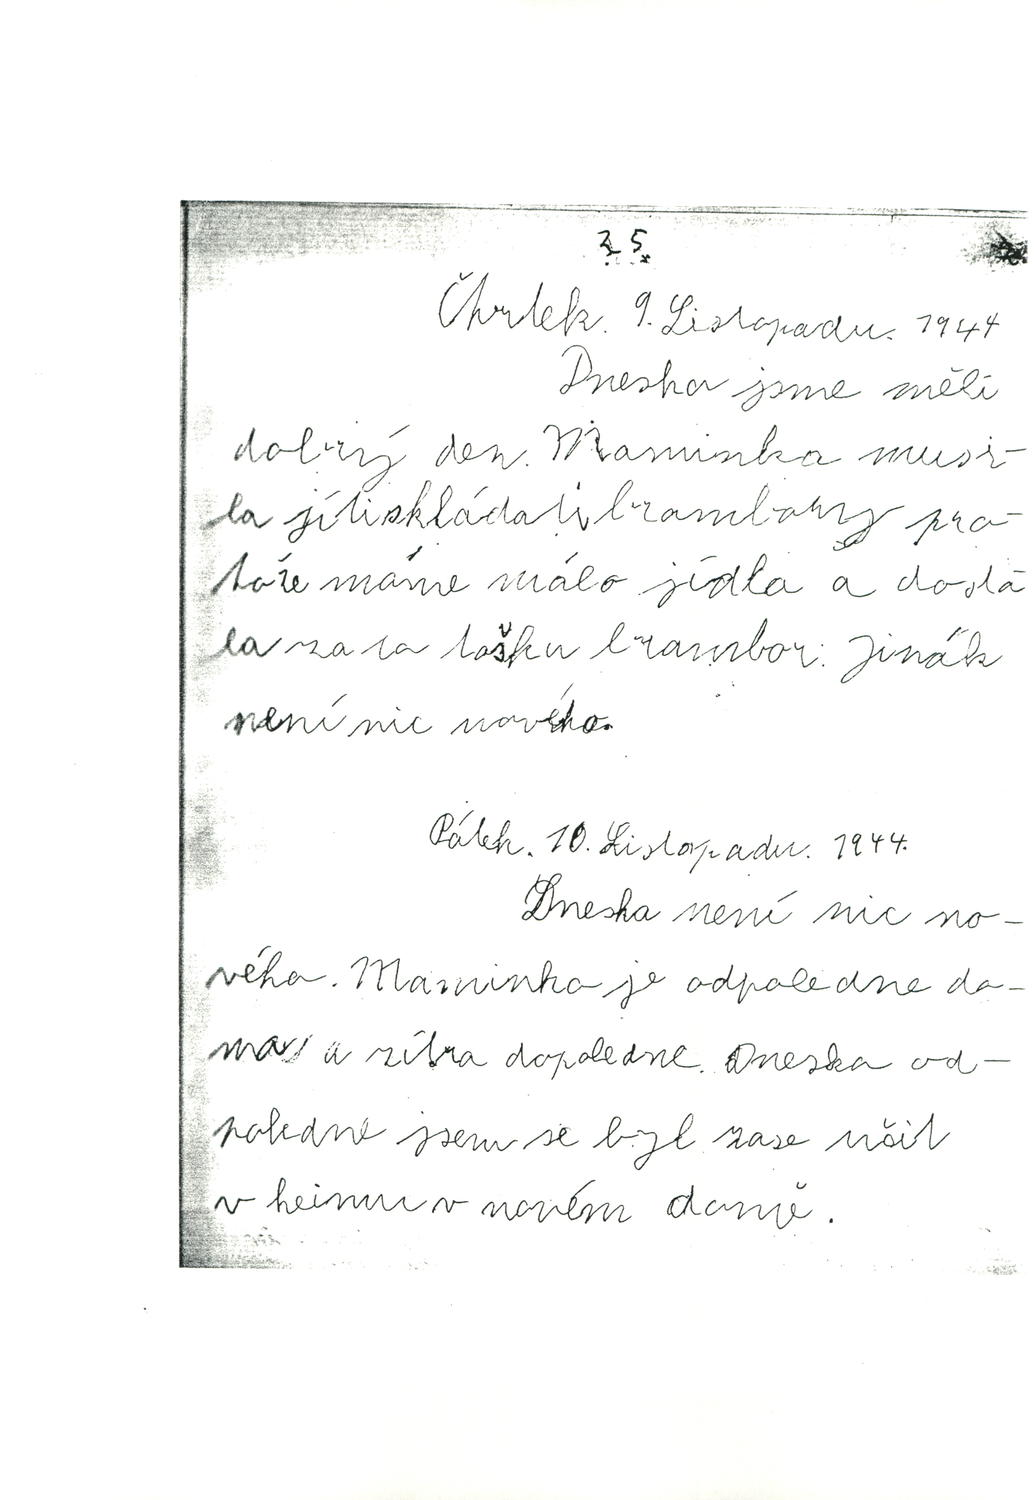 25
Čtvrtek. 9. Listopadu. 1944
Dneska jsme měli
dobrý den. Maminka musi-
la jíti skládati brambory pro-
tože máme málo jídla a dosta
la za to tošku brambor. Jinák
není nic nového.
Pátek. 10. Listopadu. 1944.
Dneska není nic no-
vého. Maminka je odpoledne do-
ma a zítra dopoledne. Dneska od-
poledne jsem se byl zase učit
v heimu v novém domě.